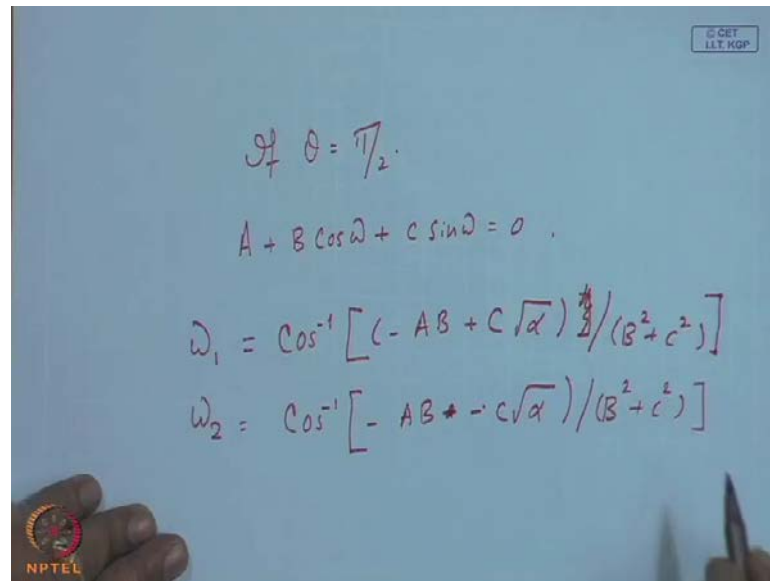 © CET
I.I.T. KGP
If θ = π/2.
A + B Cos ω + C Sin ω = 0 .
ω₁ = Cos⁻¹ [(- AB + C √α) /(B² + C²)]
ω₂ = Cos⁻¹ [- AB - C√α)/(B² + C²)]
NPTEL